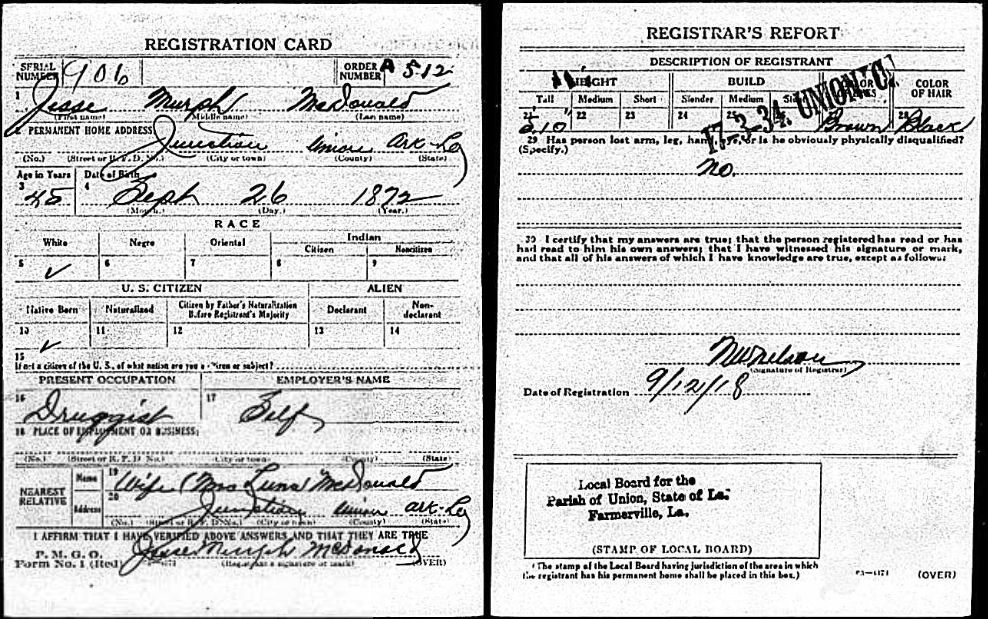 REGISTRATION CARD
SERIAL NUMBER 906 ORDER NUMBER A 512
1 Jesse Murph McDonald
(First name) (Middle name) (Last name)
2 PERMANENT HOME ADDRESS:
Junction Union Ark-La
(No.) (Street or R. F. D. No.) (City or town) (County) (State)
Age in Years Date of Birth
3 45 4 Sept 26 1872
(Month.) (Day.) (Year.)
RACE
White Negro Oriental Indian
Citizen Noncitizen
5 ✓ 6 7 8 9
U. S. CITIZEN ALIEN
Native Born Naturalized Citizen by Father's Naturalization Before Registrant's Majority Declarant Non-declarant
10 ✓ 11 12 13 14
15
If not a citizen of the U. S., of what nation are you a citizen or subject?
PRESENT OCCUPATION EMPLOYER'S NAME
16 Druggist 17 Self
18 PLACE OF EMPLOYMENT OR BUSINESS:
(No.) (Street or R. F. D. No.) (City or town) (County) (State)
NEAREST RELATIVE Name 19 Wife (Mrs Luna) McDonald
Address 20 Junction Union Ark-La
(No.) (Street or R. F. D. No.) (City or town) (County) (State)
I AFFIRM THAT I HAVE VERIFIED ABOVE ANSWERS AND THAT THEY ARE TRUE
P. M. G. O.
Form No. 1 (Red) Jesse Murph McDonald
(Registrant's signature or mark) (OVER)
REGISTRAR'S REPORT
DESCRIPTION OF REGISTRANT
HEIGHT BUILD COLOR OF EYES COLOR OF HAIR
Tall Medium Short Slender Medium
21 5.10 22 23 24 25 Brown 28 Black
17-3-34. UNION "C"
29 Has person lost arm, leg, hand, eye, or is he obviously physically disqualified?
(Specify.)
no.
30 I certify that my answers are true; that the person registered has read or has
had read to him his own answers; that I have witnessed his signature or mark,
and that all of his answers of which I have knowledge are true, except as follows:
(Signature of Registrar)
Date of Registration 9/12/18
Local Board for the
Parish of Union, State of La.
Farmerville, La.
(STAMP OF LOCAL BOARD)
(The stamp of the Local Board having jurisdiction of the area in which
the registrant has his permanent home shall be placed in this box.)
(OVER)